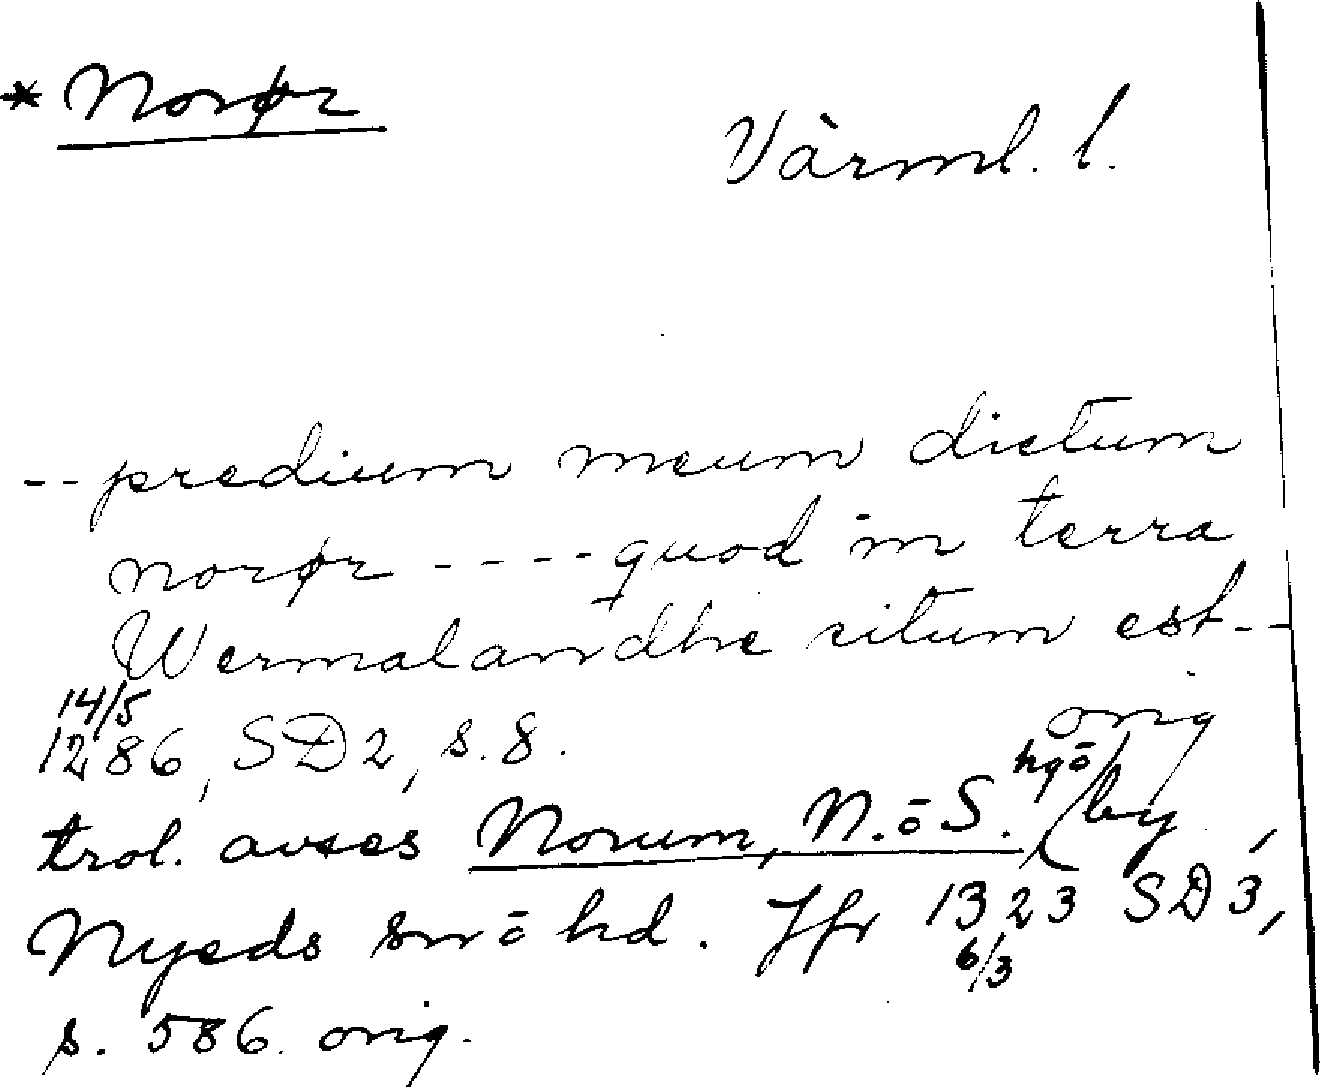 * Norør
Värml. l.
-- predium meum dictum
norør ---- quod in terra
Wermalandhe situm est --
14/5 1286, SD 2, s. 8. orig
trol. avses Norum, N. o S. hgō by,
Nyeds sn o hd. Jfr 1323 6/3 SD 3,
s. 586. orig.